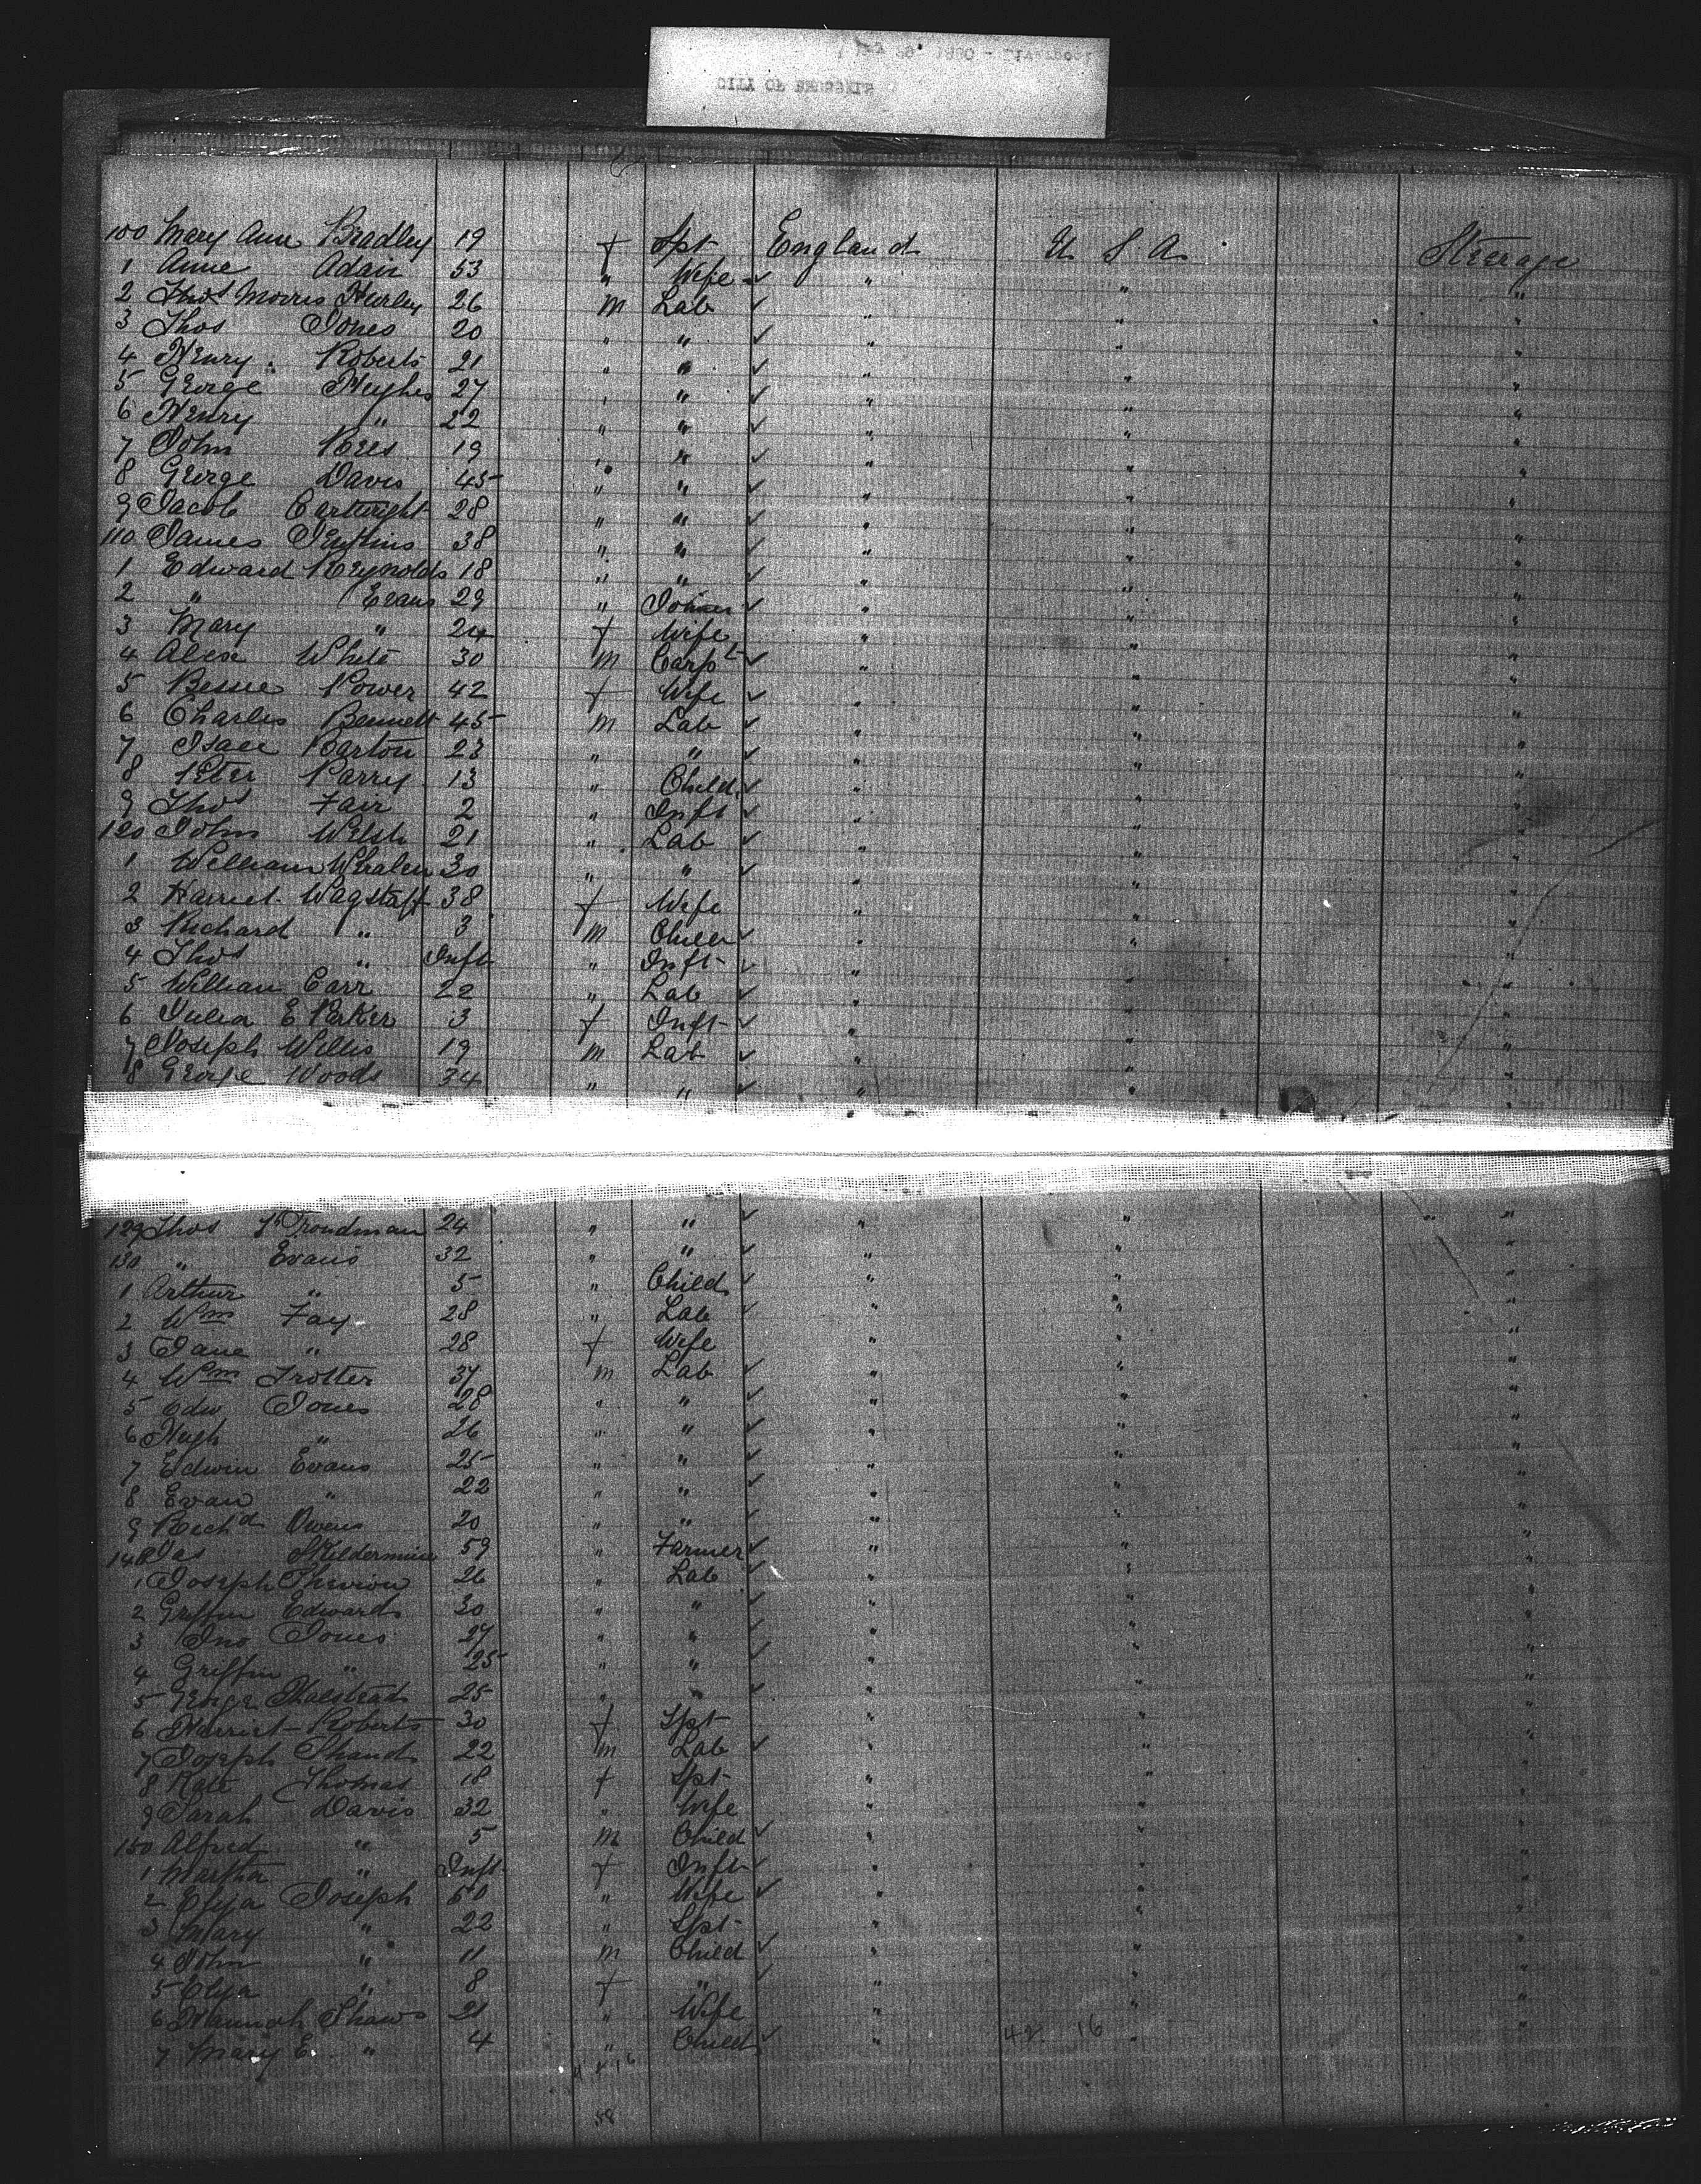 100 Mary Ann Bradley 19 f Spt England U. S. A. Steerage
1 Anne Adair 53 " Wife " " "
2 Thos Morris Hurley 26 m Lab " " "
3 Thos Jones 20 " " " " "
4 Henry Roberts 21 " " " " "
5 George Hughes 27 " " " " "
6 Henry " 22 " " " " "
7 John Rees 19 " " " " "
8 George Davis 45 " " " " "
9 Jacob Cartwright 28 " " " " "
110 James Jenkins 38 " " " " "
1 Edward Reynolds 18 " " " " "
2 " Evans 29 " Joiner " " "
3 Mary " 24 f Wife " " "
4 Alexr White 30 m Carpt " " "
5 Bessie Power 42 f Wife " " "
6 Charles Bennett 45 m Lab " " "
7 Isaac Barton 23 " " " " "
8 Peter Parry 13 " Child " " "
9 Thos Fair 2 " Inft " " "
120 John Welsh 21 " Lab " " "
1 William Whalen 30 " " " " "
2 Harriet Wagstaff 38 f Wife " " "
3 Richard " 3 m Child " " "
4 Thos " Inft " Inft " " "
5 William Carr 22 " Lab " " "
6 Julia E Parker 3 f Inft " " "
7 Joseph Willis 19 m Lab " " "
8 George Woods 34 " " " " "
129 Thos 24 " " " " "
130 " Evans 32 " " " " "
1 Arthur " 5 " Child " " "
2 Wm Fay 28 " Lab " " "
3 Jane " 28 f Wife " " "
4 Wm Trotter 37 m Lab " " "
5 Edw Jones 28 " " " " "
6 Hugh " 26 " " " " "
7 Edwin Evans 25 " " " " "
8 Evan " 22 " " " " "
9 Richd Owens 20 " " " " "
140 Jas 59 " Farmer " " "
1 Joseph 26 " Lab " " "
2 Griffin Edwards 30 " " " " "
3 Jno Jones 27 " " " " "
4 Griffin " 25 " " " " "
5 George Halstead 25 " " " " "
6 Harriet Roberts 30 f Spt " " "
7 Joseph Shand 22 m Lab " " "
8 Kate Thomas 18 f Spt " " "
9 Sarah Davis 32 " Wife " " "
150 Alfred " 5 m Child " " "
1 Martha " Inft f Inft " " "
2 Eliza Joseph 50 " Wife " " "
3 Mary " 22 " Spt " " "
4 John " 11 m Child " " "
5 Eliza " 8 f " " " "
6 Hannah Shaws 21 " Wife " " "
7 Mary E. " 4 " Child " 42 16 "
58